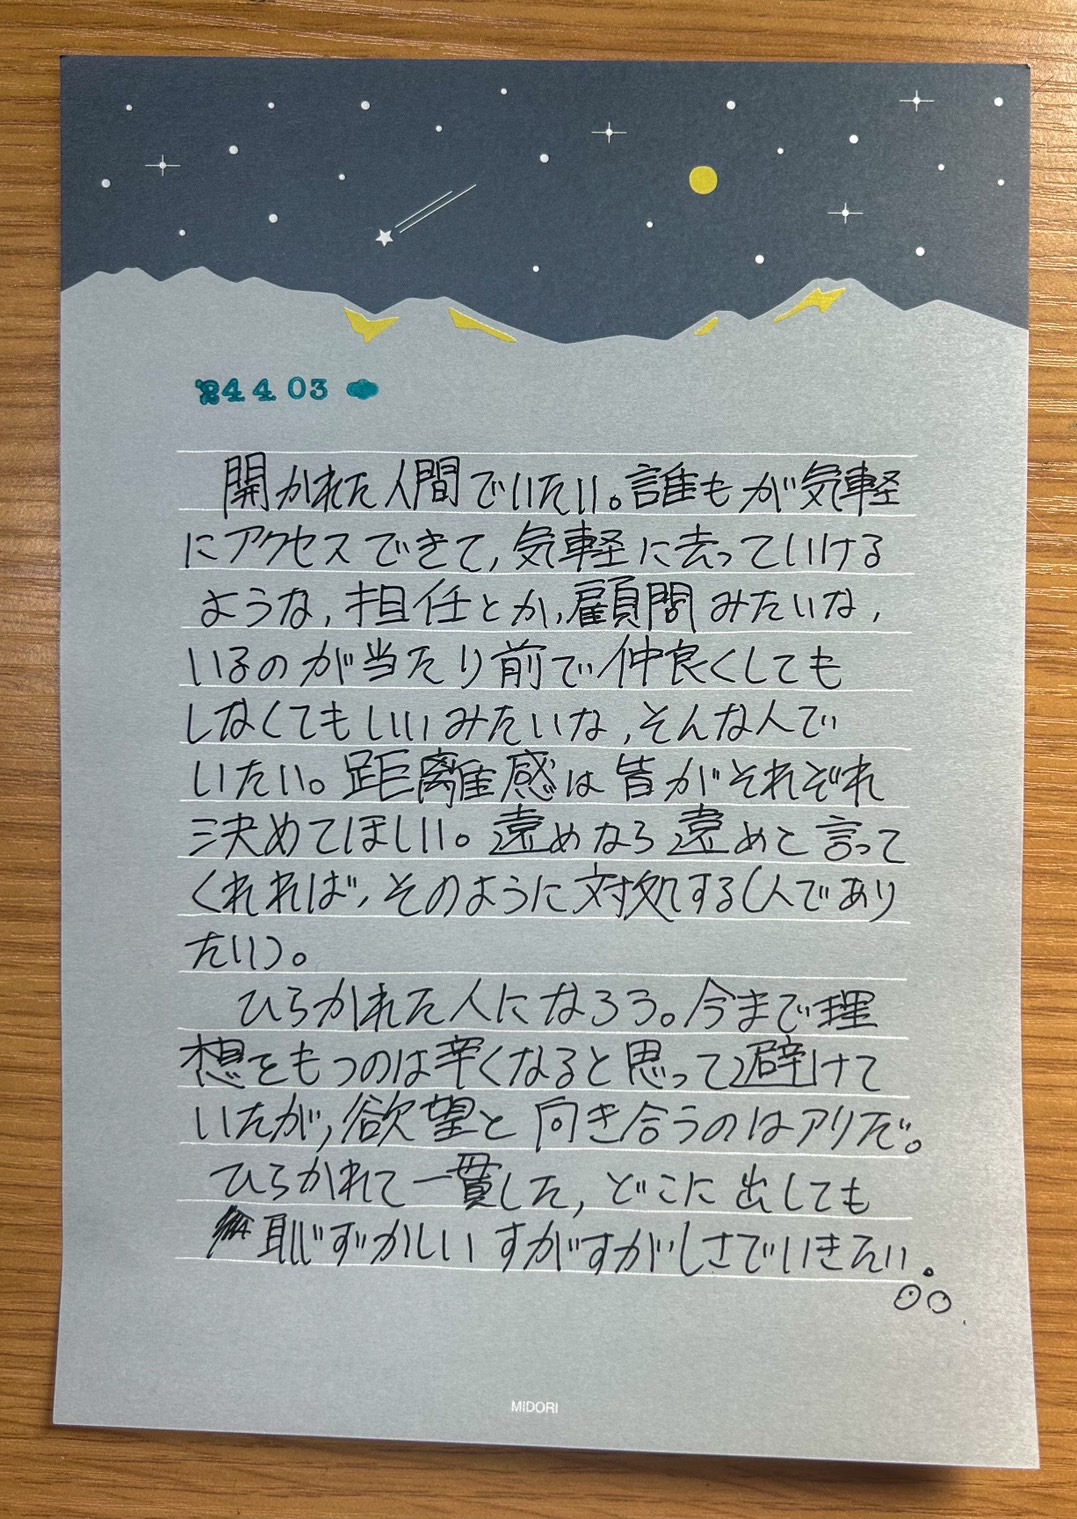 '24.4.03
開かれた人間でいたい。誰もが気軽
にアクセスできて、気軽に去っていける
ような、担任とか、顧問みたいな、
いるのが当たり前で仲良くしても
しなくてもいいみたいな、そんな人で
いたい。距離感は皆がそれぞれ
決めてほしい。遠めなら遠めと言って
くれれば、そのように対処する(人であり
たい)。
ひらかれた人になろう。今まで理
想をもつのは辛くなると思って避けて
いたが、欲望と向き合うのはアリだ。
ひらかれて一貫した、どこに出しても
恥ずかしいすがすがしさでいきたい。
MIDORI